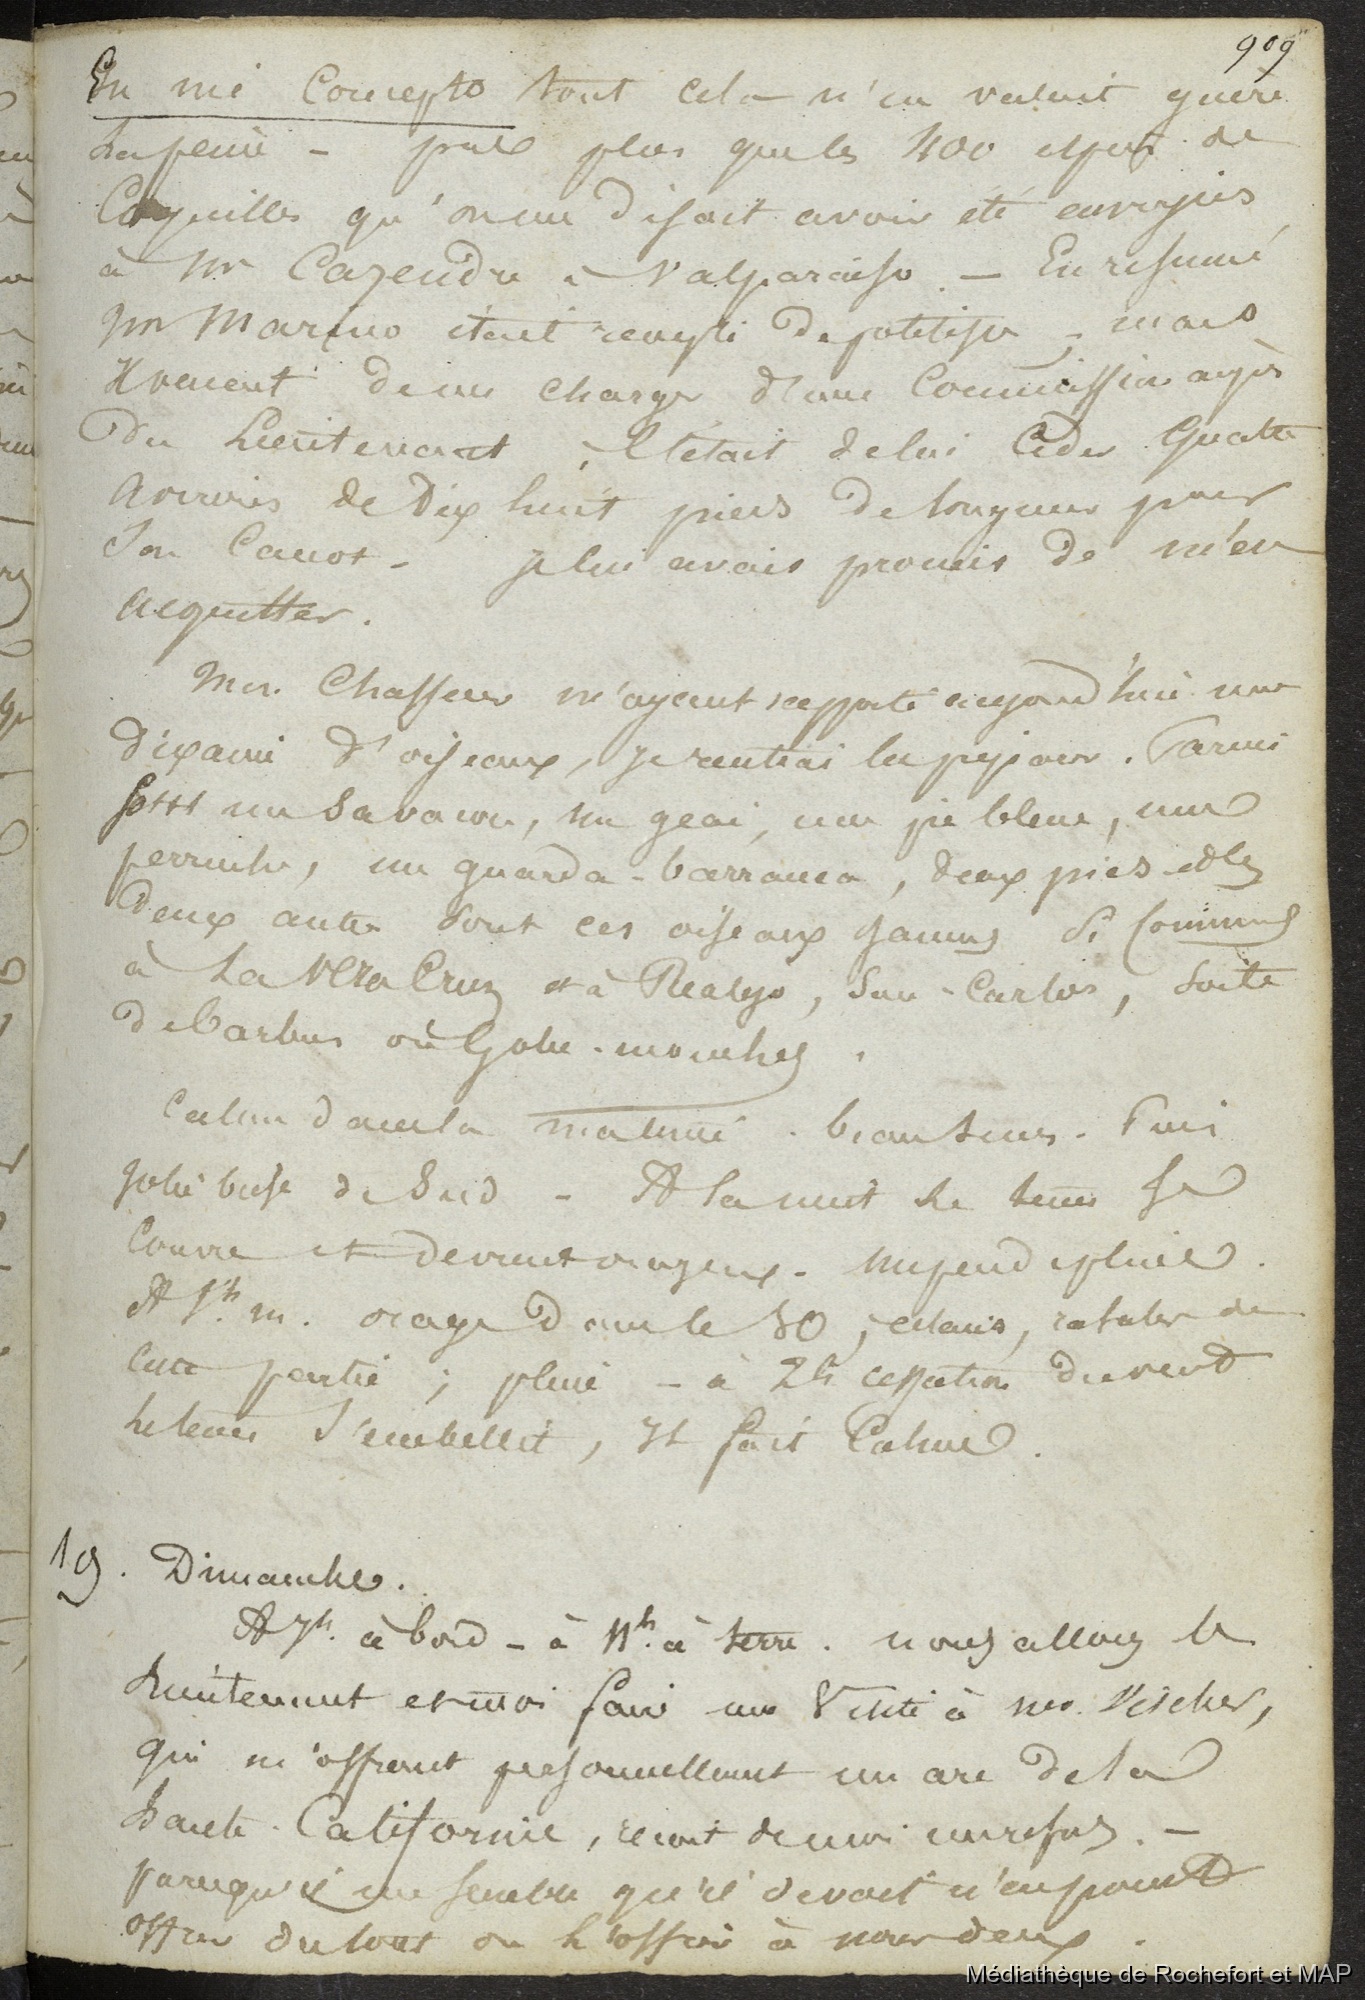 909
En mi Concepto tout cela n'en valait guère
la peine - pas plus que les 400 espèces de
Coquilles qu'on me disait avoir été envoyées
à Mr Cazendre à Valparaiso. — En résumé
Mr Marino était rempli de politesse, mais
il venait de me charger d'une Commission auprès
du Lieutenant ; C'était de lui Céder Quatre
avirons de Dix huit pieds de longueur pour
Son Canot - je lui avais promis de m'en
acquitter.
Mon Chasseur m'ayant rapporté aujourd'hui une
dixaine d'oiseaux, je rentrai les préparer. Parmi
sont un Savacou, un geai, une pie bleue, une
perruche, un guarda-barranca, deux pies et les
deux autres sont ces oiseaux jaunes si Communs
à La Vera Cruz et à Realejo, San-Carlos, sorte
de barbus ou Gobe-mouches.
Calme dans la matinée. beau tems. Puis
jolie brise de Sud - A la nuit le tems se
Couvre et devient orageux. un peu de pluie.
A 1h. m. orage dans le SO, éclairs, rafales de
cette partie ; pluie - à 2h cessation du vent
le tems s'embellit, Il fait Calme.
19. Dimanche.
A 7h. à bord - à 11h. à terre. nous allons le
Lieutenant et moi faire une Visite à Mr. Vischer,
qui m'offrant personnellement un arc de la
haute-Californie, reçoit de moi un refus. —
parcequ'il me semble qu'il devait n'en point
offrir du tout ou l'offrir à nous deux.
Médiathèque de Rochefort et MAP